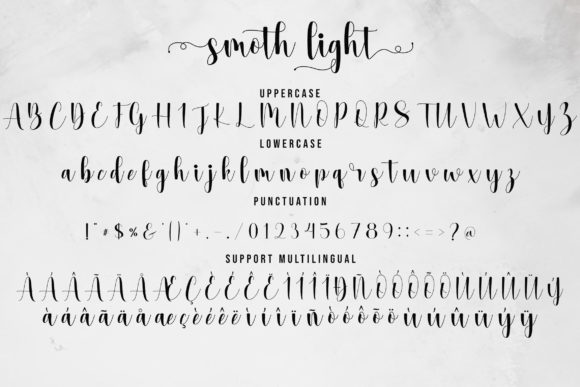 smoth light
UPPERCASE
A B C D E F G H I J K L M N O P Q R S T U V W X Y Z
LOWERCASE
a b c d e f g h i j k l m n o p q r s t u v w x y z
PUNCTUATION
! " # $ % & ' ( ) * + , - . / 0 1 2 3 4 5 6 7 8 9 : ; < = > ? @
SUPPORT MULTILINGUAL
À Á Â Ã Ä Å Æ Ç È É Ê Ë Ì Í Î Ï Ð Ñ Ò Ó Ô Õ Ö Ù Ú Û Ü Ý
à á â ã ä å æ ç è é ê ë ì í î ï ñ ò ó ô õ ö ù ú û ü ý ÿ